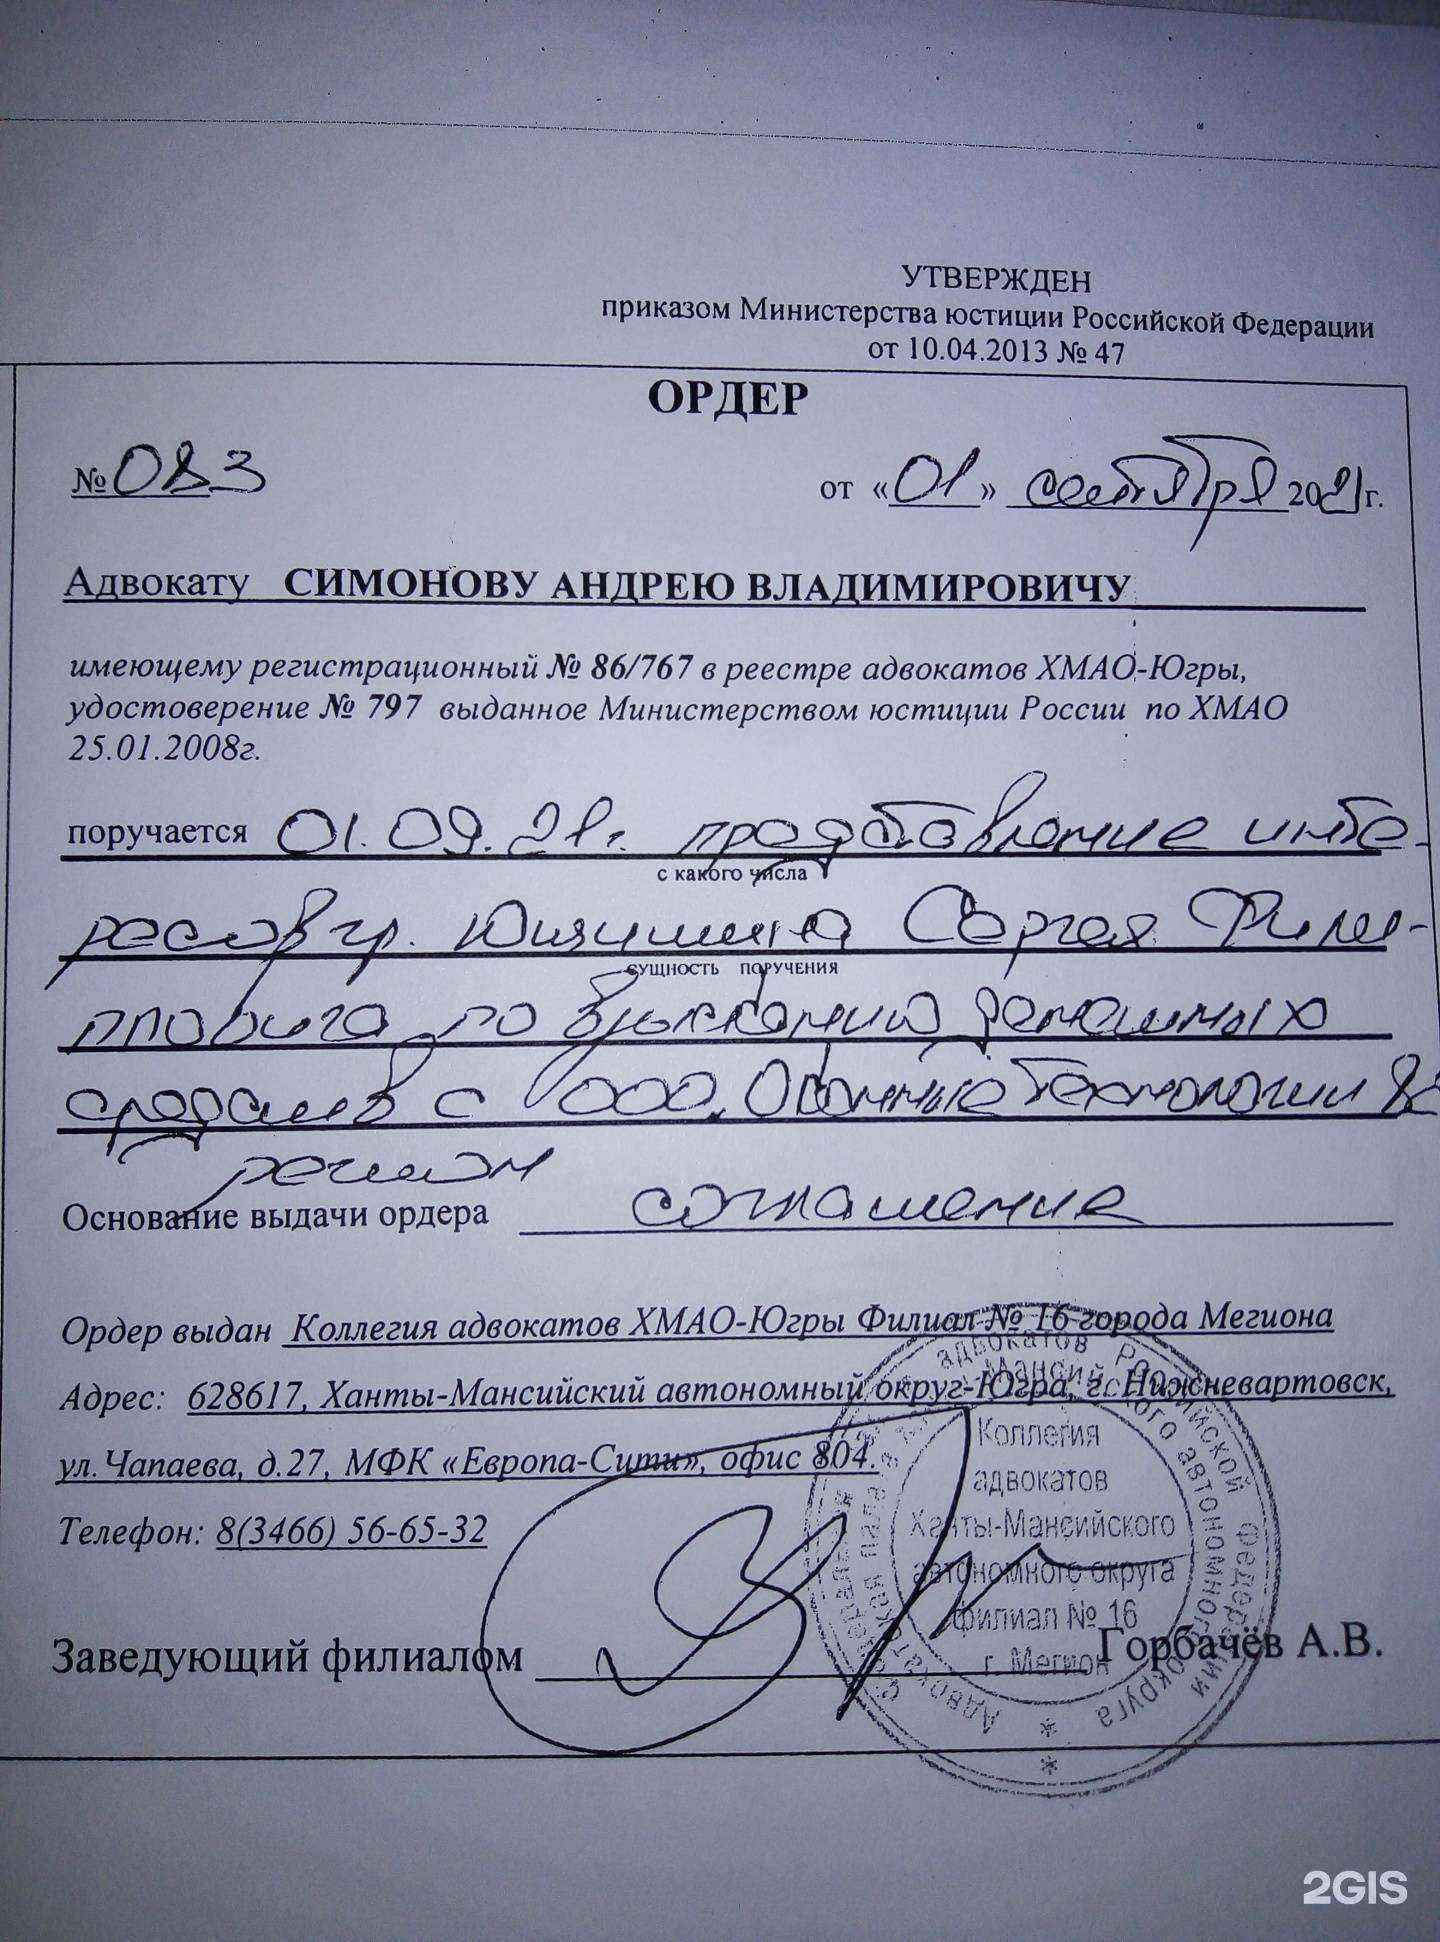 УТВЕРЖДЕН
приказом Министерства юстиции Российской Федерации
от 10.04.2013 № 47
ОРДЕР
№ 083
от «01» сентября 2021 г.
Адвокату СИМОНОВУ АНДРЕЮ ВЛАДИМИРОВИЧУ
имеющему регистрационный № 86/767 в реестре адвокатов ХМАО-Югры,
удостоверение № 797 выданное Министерством юстиции России по ХМАО
25.01.2008г.
поручается 01.09.21г. представление инте-
с какого числа
ресов гр. Сергея Филип-
сущность поручения
повича по взысканию денежных
средств с ООО "Оконные Технологии
регион
Основание выдачи ордера соглашение
Ордер выдан Коллегия адвокатов ХМАО-Югры Филиал № 16 города Мегиона
Адрес: 628617, Ханты-Мансийский автономный округ-Югра, г. Нижневартовск,
ул.Чапаева, д.27, МФК «Европа-Сити», офис 804.
Телефон: 8(3466) 56-65-32
Заведующий филиалом Горбачёв А.В.
Коллегия
адвокатов
Ханты-Мансийского
автономного округа
филиал № 16
г. Мегион
2GIS